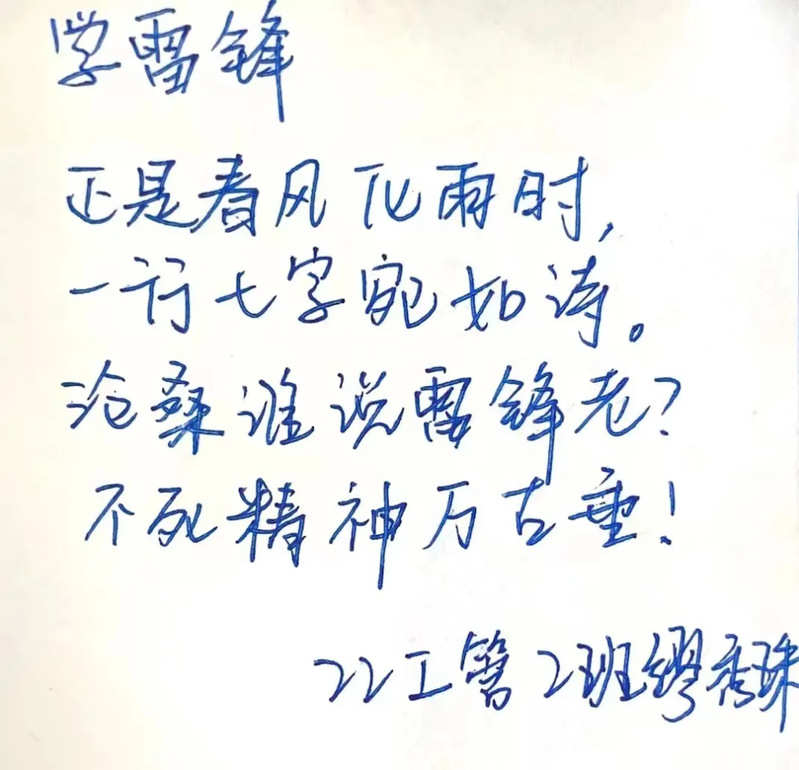 学雷锋
正是春风化雨时,
一行七字宛如诗。
沧桑谁说雷锋老?
不死精神万古垂!
22工管2班缪秀珠